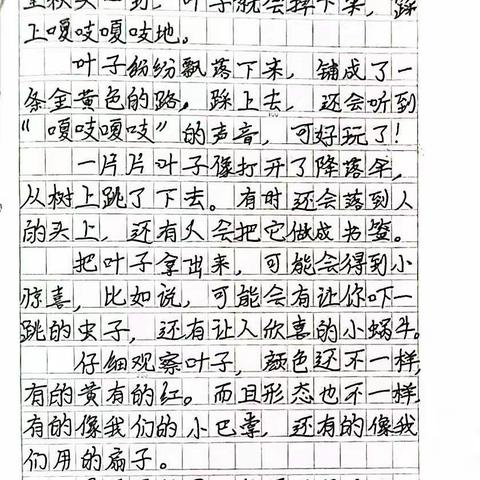 叶子就会掉下来，踩
上嘎吱嘎吱地。
叶子纷纷飘落下来，铺成了一
条金黄色的路，踩上去，还会听到
“嘎吱嘎吱”的声音，可好玩了！
一片片叶子像打开了降落伞，
从树上跳了下去。有时还会落到人
的头上，还有人会把它做成书签。
把叶子拿出来，可能会得到小
惊喜，比如说，可能会有让你吓一
跳的虫子，还有让人欣喜的小蜗牛。
仔细观察叶子，颜色还不一样，
有的黄有的红。而且形态也不一样，
有的像我们的小巴掌，还有的像我
们用的扇子。